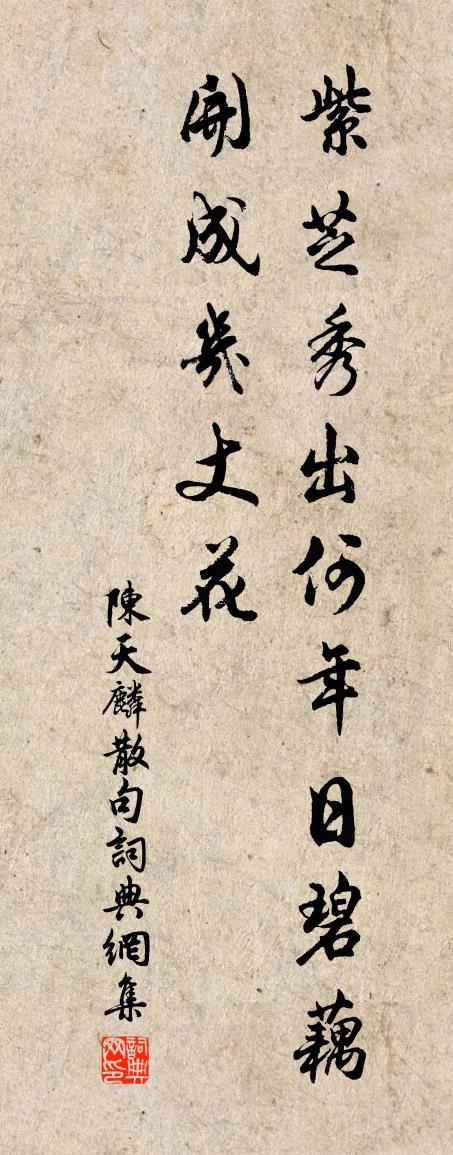 紫芝秀出何年日碧藕
開成幾丈花
陳天麟散句詞典網集
詞典網印